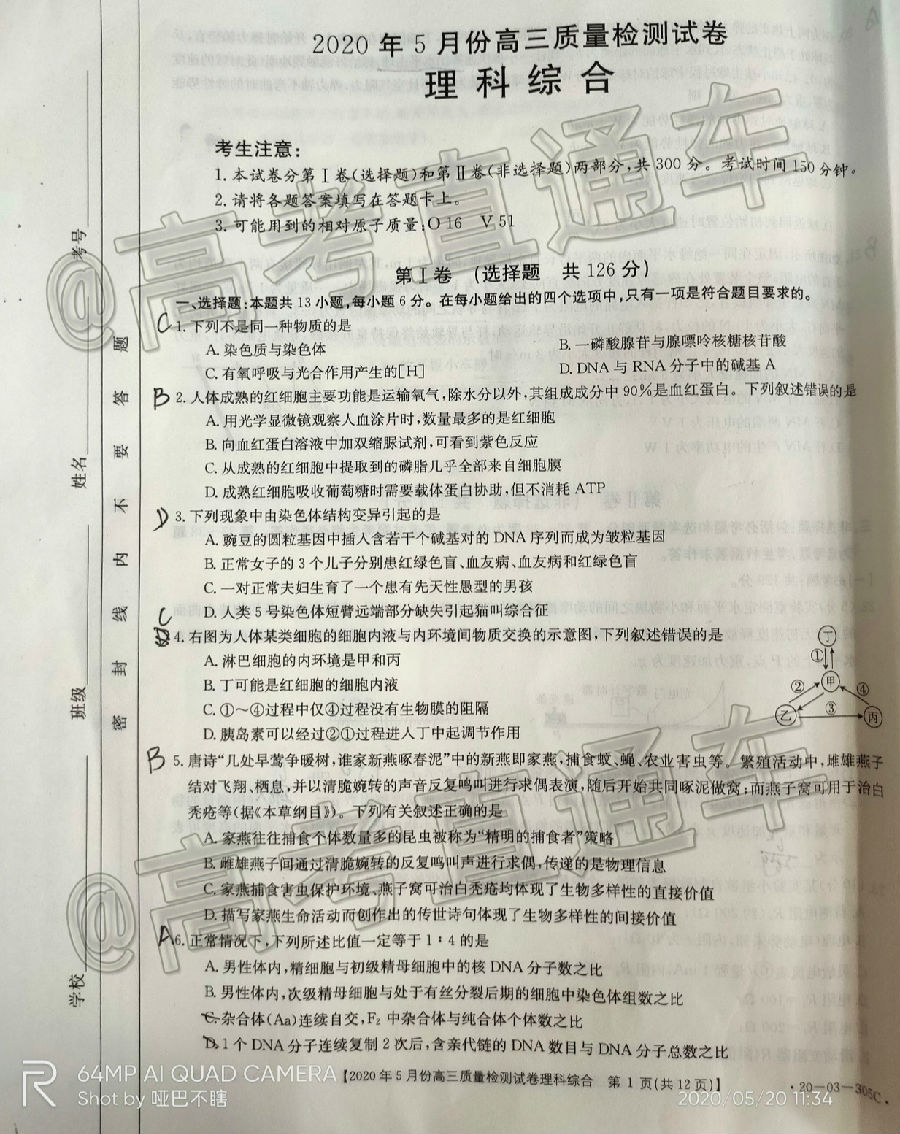 2020年5月份高三质量检测试卷
理科综合
考生注意:
1.本试卷分第Ⅰ卷(选择题)和第Ⅱ卷(非选择题)两部分,共300分。考试时间150分钟。
2.请将各题答案填写在答题卡上。
3.可能用到的相对原子质量:O 16 V 51
第Ⅰ卷 (选择题 共126分)
一、选择题:本题共13小题,每小题6分。在每小题给出的四个选项中,只有一项是符合题目要求的。
C 1.下列不是同一种物质的是
A.染色质与染色体 B.一磷酸腺苷与腺嘌呤核糖核苷酸
C.有氧呼吸与光合作用产生的[H] D.DNA与RNA分子中的碱基A
B 2.人体成熟的红细胞主要功能是运输氧气,除水分以外,其组成成分中90%是血红蛋白。下列叙述错误的是
A.用光学显微镜观察人血涂片时,数量最多的是红细胞
B.向血红蛋白溶液中加双缩脲试剂,可看到紫色反应
C.从成熟的红细胞中提取到的磷脂几乎全部来自细胞膜
D.成熟红细胞吸收葡萄糖时需要载体蛋白协助,但不消耗ATP
D 3.下列现象中由染色体结构变异引起的是
A.豌豆的圆粒基因中插入含若干个碱基对的DNA序列而成为皱粒基因
B.正常女子的3个儿子分别患红绿色盲、血友病、血友病和红绿色盲
C.一对正常夫妇生育了一个患有先天性愚型的男孩
D.人类5号染色体短臂远端部分缺失引起猫叫综合征
C
4.右图为人体某类细胞的细胞内液与内环境间物质交换的示意图,下列叙述错误的是
A.淋巴细胞的内环境是甲和丙
B.丁可能是红细胞的细胞内液
C.①~④过程中仅④过程没有生物膜的阻隔
D.胰岛素可以经过②①过程进人丁中起调节作用
丁
①
甲
② ④
乙 ③ 丙
B 5.唐诗“几处早莺争暖树,谁家新燕啄春泥”中的新燕即家燕,捕食蚊、蝇、农业害虫等。繁殖活动中,雄雌燕子
结对飞翔、栖息,并以清脆婉转的声音反复鸣叫进行求偶表演,随后开始共同啄泥做窝;而燕子窝可用于治白
秃疮等(据《本草纲目》)。下列有关叙述正确的是
A.家燕往往捕食个体数量多的昆虫被称为“精明的捕食者”策略
B.雌雄燕子间通过清脆婉转的反复鸣叫声进行求偶,传递的是物理信息
C.家燕捕食害虫保护环境、燕子窝可治白秃疮均体现了生物多样性的直接价值
D.描写家燕生命活动而创作出的传世诗句体现了生物多样性的间接价值
A 6.正常情况下,下列所述比值一定等于1∶4的是
A.男性体内,精细胞与初级精母细胞中的核DNA分子数之比
B.男性体内,次级精母细胞与处于有丝分裂后期的细胞中染色体组数之比
C.杂合体(Aa)连续自交,F₂中杂合体与纯合体个体数之比
D.1个DNA分子连续复制2次后,含亲代链的DNA数目与DNA分子总数之比
【2020年5月份高三质量检测试卷理科综合 第1页(共12页)】
·20-03-305C·
考号
姓名
班级
学校
密封线内不要答题
@高考直通车
@高考直通车
64MP AI QUAD CAMERA
Shot by 哑巴不瞎
2020/05/20 11:34